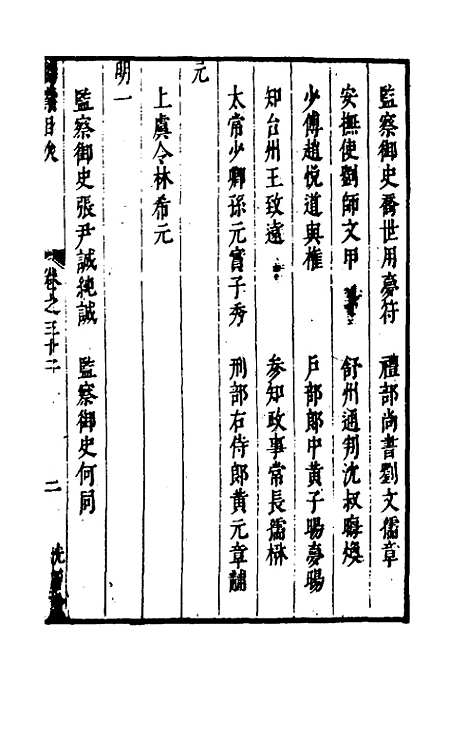 監察御史喬世用夢符　禮部尚書劉文儒章
安撫使劉師文甲　舒州通判沈叔晦煥
少傅趙悅道與權　戶部郎中黃子暘夢暘
知台州王致遠　參知政事常長孺楙
太常少卿孫元實子秀　刑部右侍郎黃元章黼
元
上虞令林希元
明一
監察御史張尹誠純誠　監察御史何同
目次　卷之三十二　二